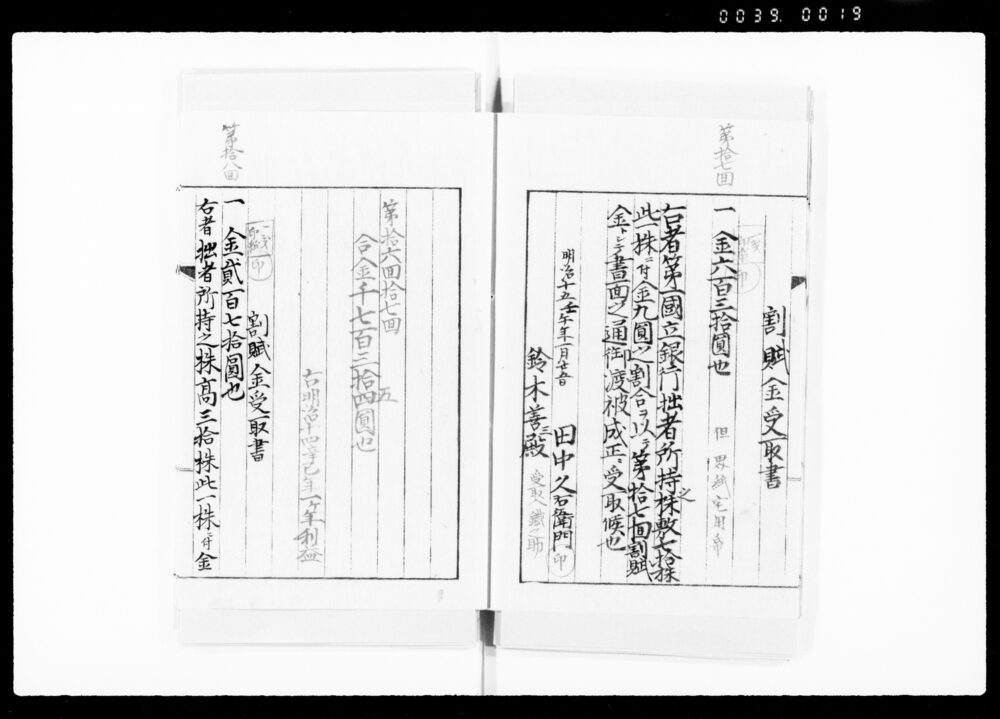 0039. 0019
第拾七回
割賦金受取書
一金六百三拾圓也
但 界紙宅用帋
印
右者第一國立銀行拙者所持之株敷七拾株
此一株ニ付金九圓之割合ヲ以テ第拾七回割賦
金トシテ書面之通御渡被成正ニ受取候也
明治十五壬午年一月廿五日
田中久右衛門 印
鈴木善三殿
受取人鐵之助
第拾六回拾七回
合金千七百三拾五四圓也
右明治十四辛巳年一ヶ年利益
第拾八回
割賦金受取書
印
一金貳百七拾圓也
右者拙者所持之株高三拾株此一株ニ付金